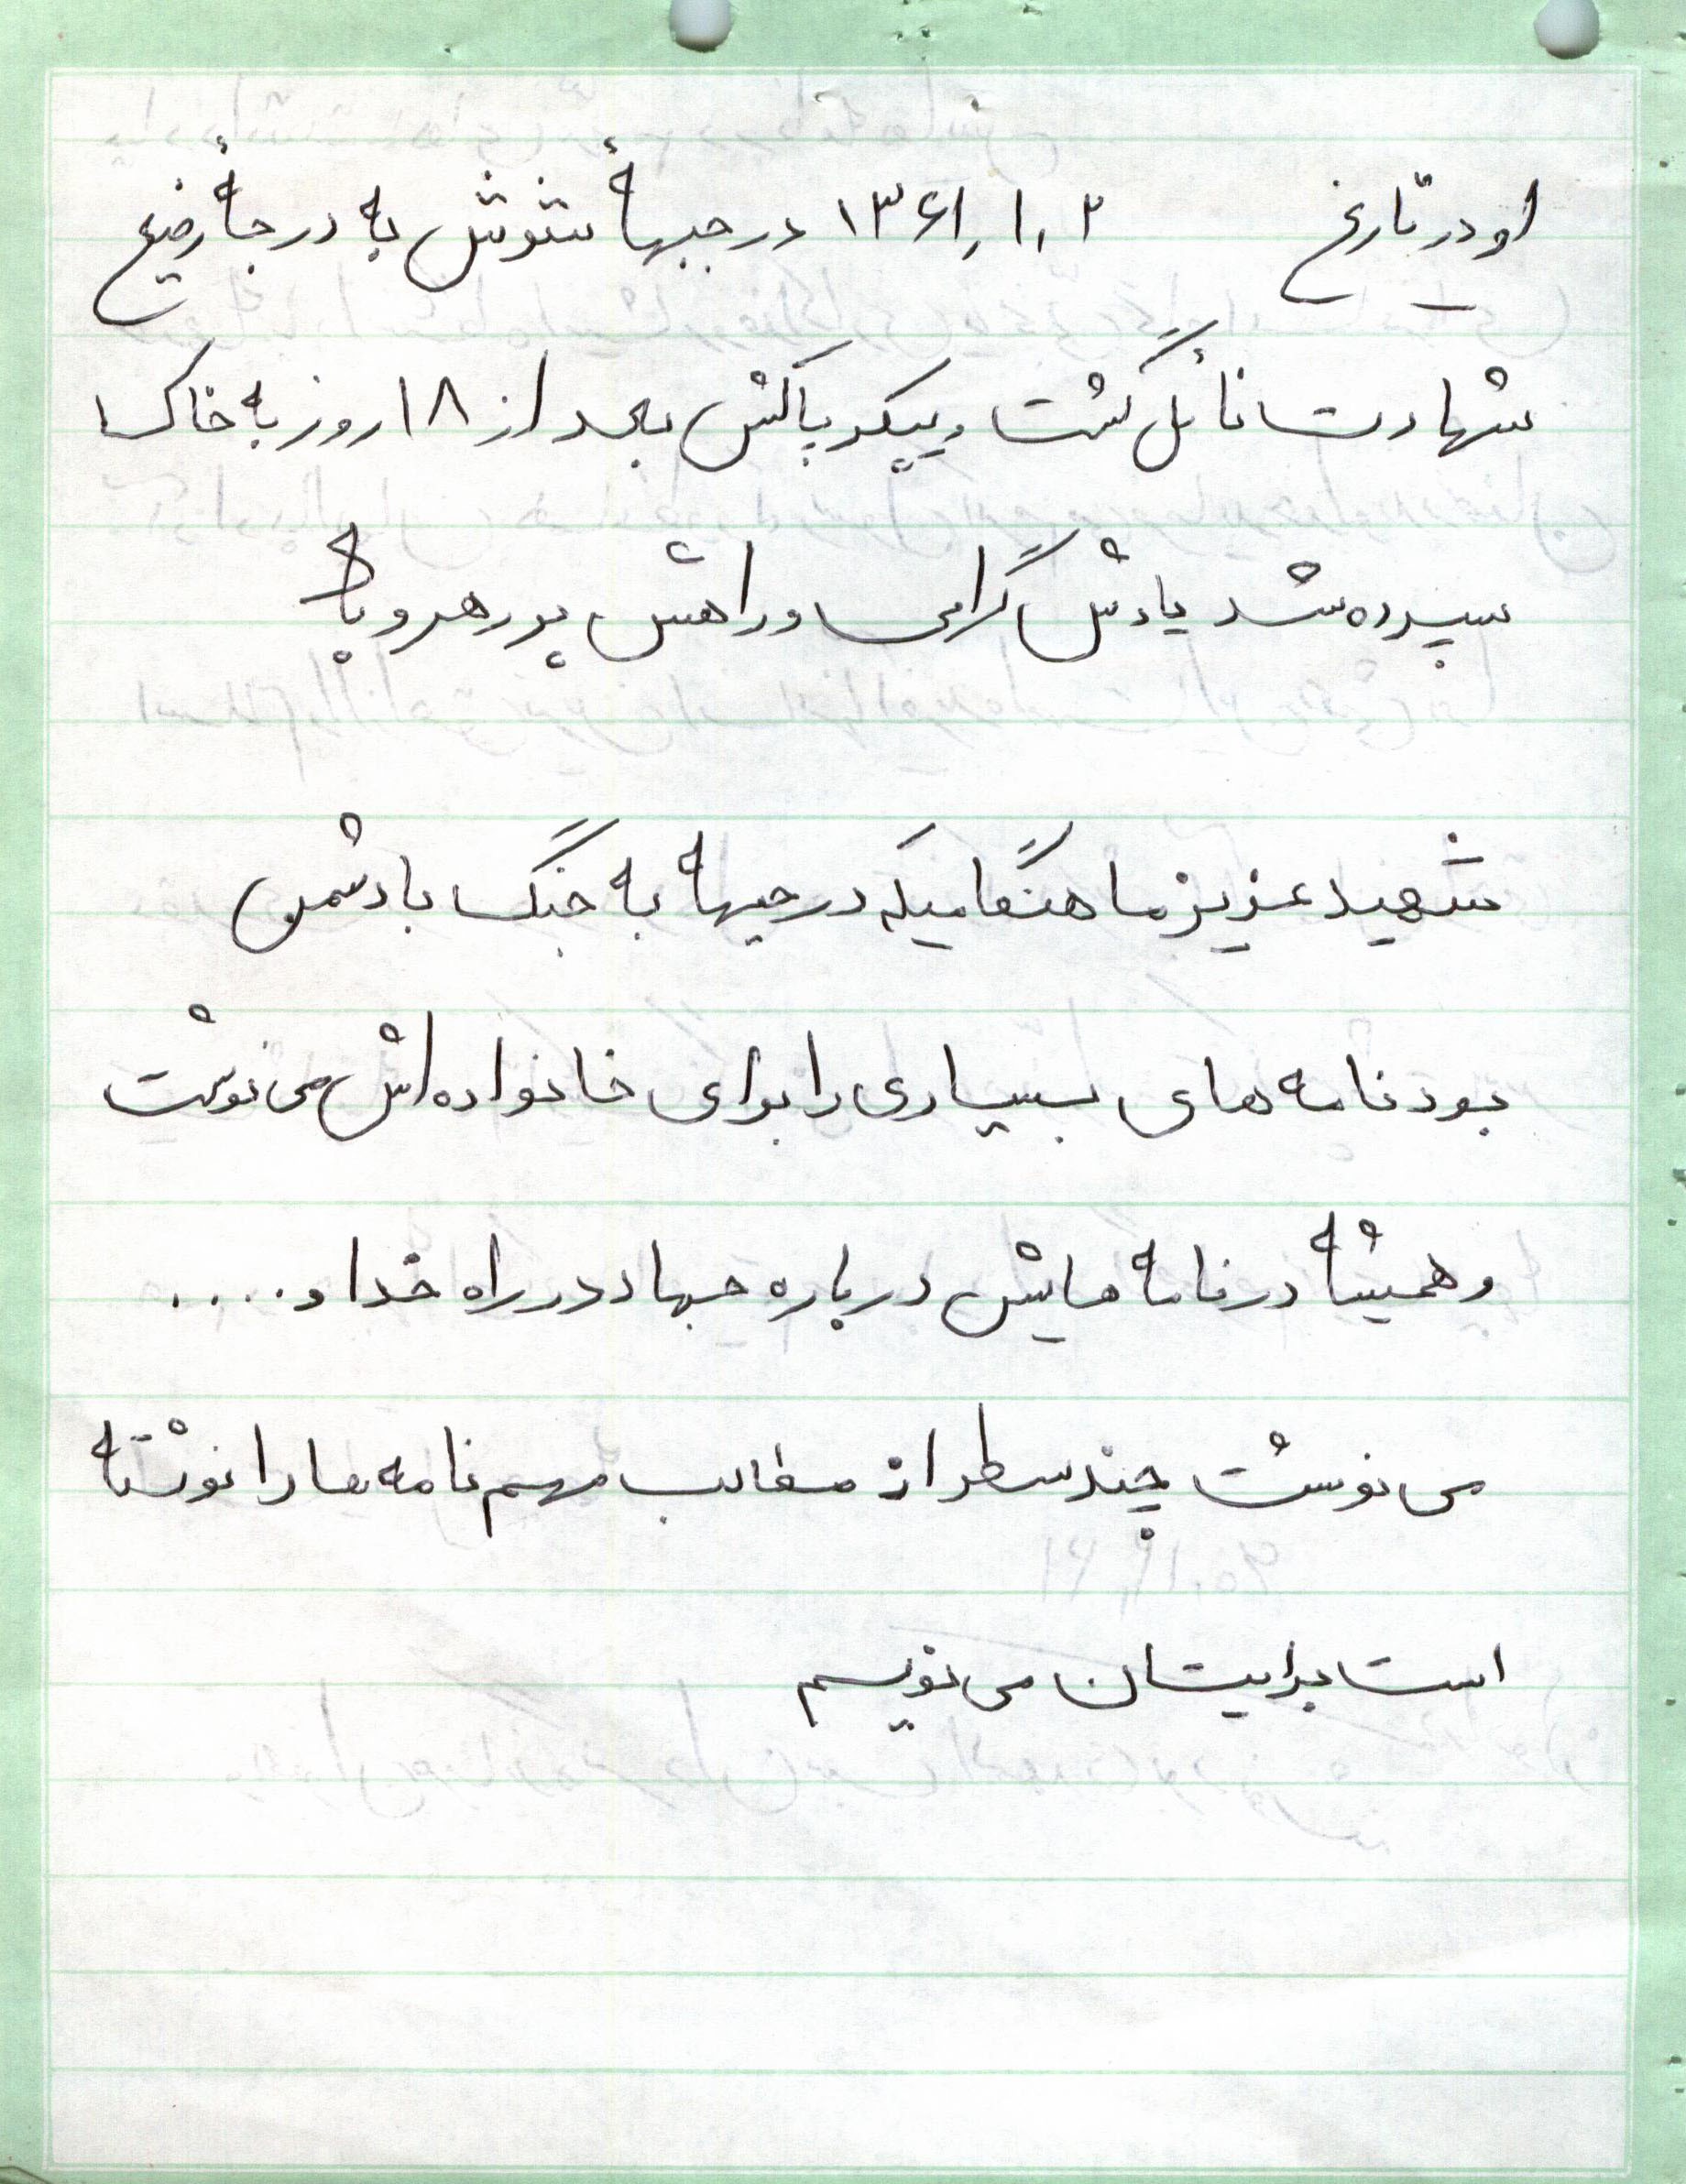 او در تاریخ ۱۳۶۱,۱,۲ در جبههٔ شوش به درجهٔ رفیع
شهادت نائل گشت و پیکر پاکش بعد از ۱۸ روز به خاک
سپرده شد یادش گرامی و راهش پر رهرو باد
شهید عزیز ما هنگامیکه در جبهه به جنگ با دشمن
بود نامه های بسیاری را برای خانواده اش می نوشت
و همیشه در نامه هایش درباره جهاد در راه خدا و ....
می نوشت چند سطر از مطالب مهم نامه ها را نوشته
است برایتان می نویسم